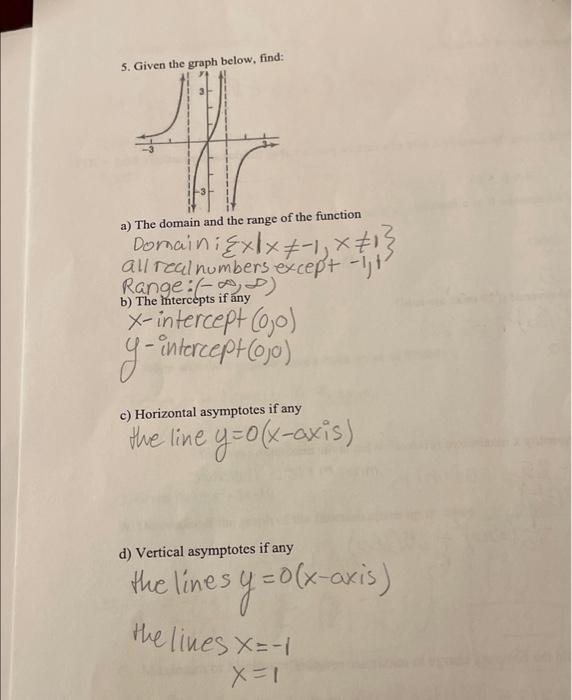 5. Given the graph below, find:
y
3
-3
3
-3
a) The domain and the range of the function
Domain: {x|x≠-1, x≠1}
all real numbers except -1,1
Range: (-∞,∞)
b) The intercepts if any
x-intercept (0,0)
y-intercept (0,0)
c) Horizontal asymptotes if any
the line y=0(x-axis)
d) Vertical asymptotes if any
the lines y=0(x-axis)
the lines x=-1
x=1